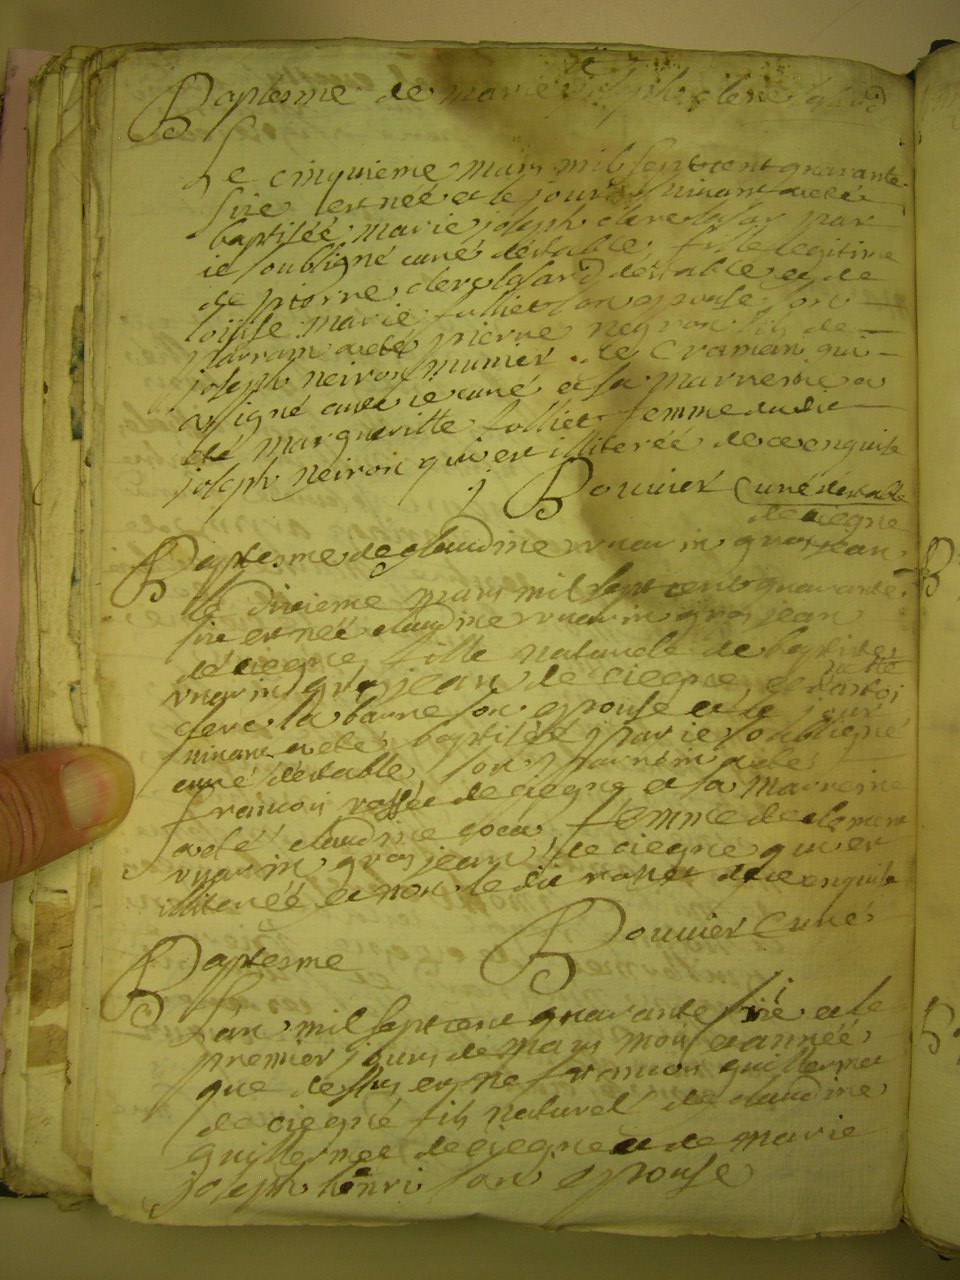 Baptesme de marie joseph clerc
Le cinquieme mars mil sept cent quarante
sixe est née et le jour suivant a eté
baptisée marie joseph clerc par
ie soubsigné curé destable fille legitime
de pierre clerc destable et de
loüise marie folliet son epouse son
parrain a eté pierre negron fils de
joseph neiron munier de Craman qui
a signé avec ie curé et sa marreine a
eté margueritte folliet femme dudit
joseph neiron qui est illiterée de ce enquise
Bouuier Curé destable
de ciegne
Baptesme de glaudine vuarin gros jean
Le dixieme mars mil sept cent quarante
sixe est née claudine vuarin gros jean
de ciegne fille naturele de baptiste
vuarin gros jean de ciegne et
clerc la barre son epouse et le jour
suivant a eté baptisée par ie soubsigné
curé destable son parrein a eté
francois rosset de ciegne et sa marreine
a eté claudine femme de
vuarin gros jean de ciegne qui est
illiterée et non le dit rosset de ce enquise
Bouuier Curé
Baptesme
L'an mil sept cent quarante sixe et le
premier jours de mars mois et année
que dessus est né francois guillermet
de ciegne fils naturel de claudine
guillermet de ciegne et de marie
joseph henri son epouse